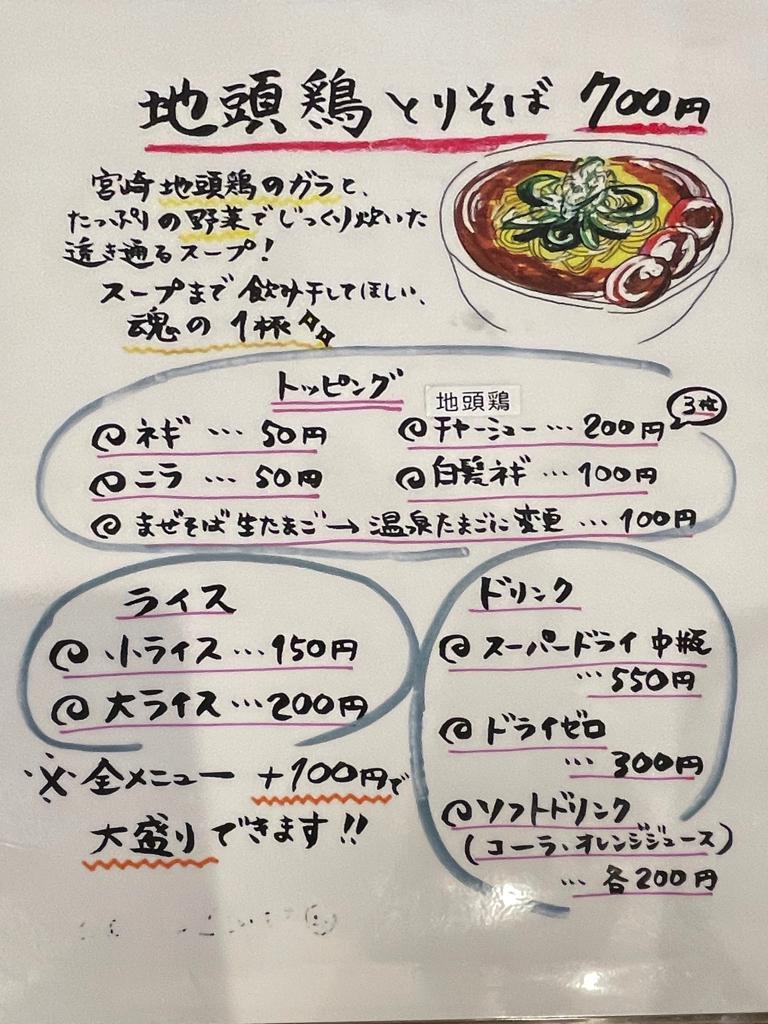 地頭鶏とりそば 700円
宮崎地頭鶏のガラと、
たっぷりの野菜でじっくり炊いた
透き通るスープ!
スープまで飲み干してほしい、
魂の1杯
トッピング
ネギ … 50円
地頭鶏
チャーシュー … 200円
3枚
ニラ … 50円
白髪ネギ … 100円
まぜそば生たまご→温泉たまごに変更 … 100円
ライス
小ライス … 150円
大ライス … 200円
※全メニュー +100円で
大盛りできます!!
ドリンク
スーパードライ中瓶
… 550円
ドライゼロ
… 300円
ソフトドリンク
(コーラ、オレンジジュース)
… 各200円